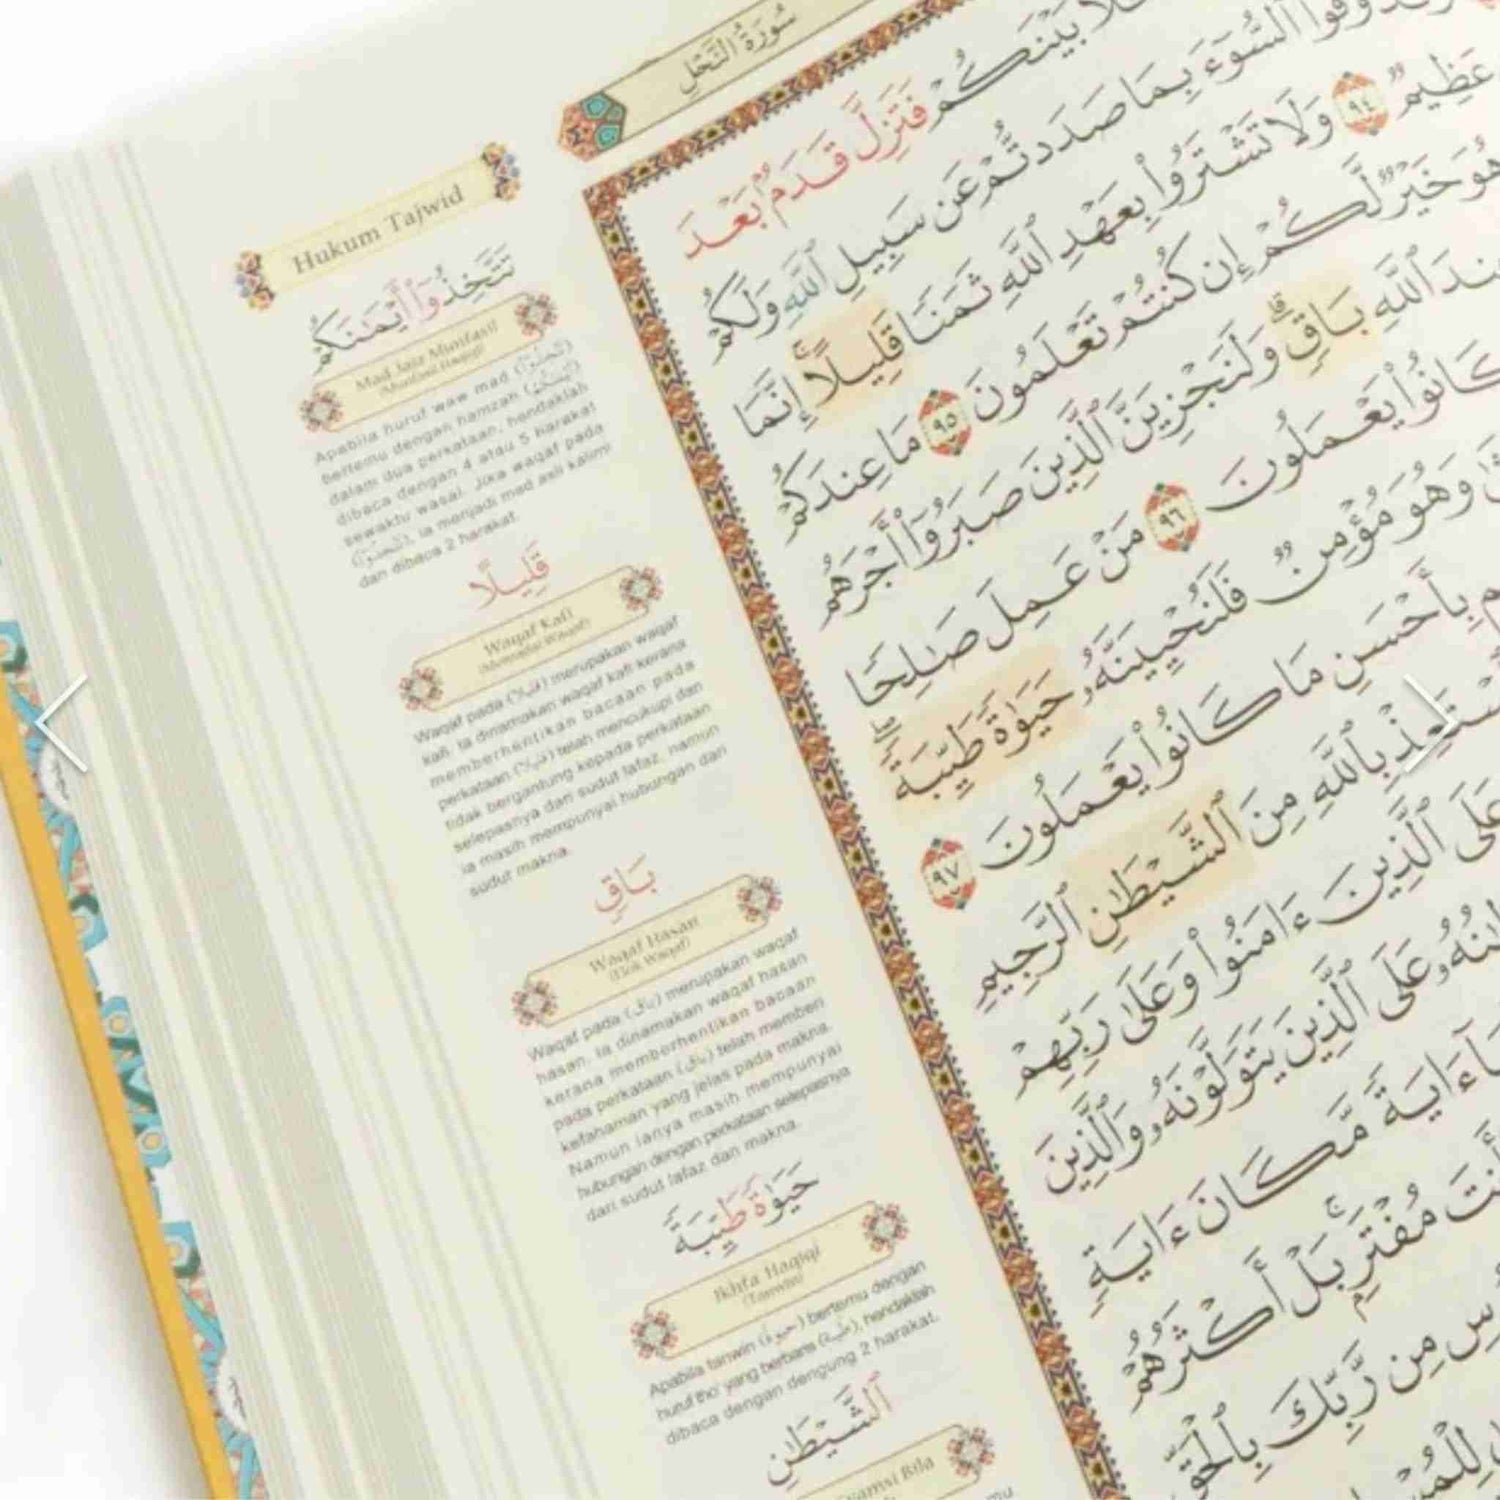 سُورَةُ النَّحْلِ
بَيْنَكُمْ فَتَزِلَّ قَدَمٌۢ بَعْدَ
ٱلسُّوٓءَ بِمَا صَدَدتُّمْ عَن سَبِيلِ ٱللَّهِ وَلَكُمْ
عَظِيمٌ ٩٤ وَلَا تَشْتَرُوا۟ بِعَهْدِ ٱللَّهِ ثَمَنًا قَلِيلًا ۚ إِنَّمَا
هُوَ خَيْرٌ لَّكُمْ إِن كُنتُمْ تَعْلَمُونَ ٩٥ مَا عِندَكُمْ
ٱللَّهِ بَاقٍ ۗ وَلَنَجْزِيَنَّ ٱلَّذِينَ صَبَرُوٓا۟ أَجْرَهُم
كَانُوا۟ يَعْمَلُونَ ٩٦ مَنْ عَمِلَ صَـٰلِحًا
وَهُوَ مُؤْمِنٌ فَلَنُحْيِيَنَّهُۥ حَيَوٰةً طَيِّبَةً ۖ
بِأَحْسَنِ مَا كَانُوا۟ يَعْمَلُونَ ٩٧
بِٱللَّهِ مِنَ ٱلشَّيْطَـٰنِ ٱلرَّجِيمِ
عَلَى ٱلَّذِينَ ءَامَنُوا۟ وَعَلَىٰ رَبِّهِمْ
عَلَى ٱلَّذِينَ يَتَوَلَّوْنَهُۥ وَٱلَّذِينَ
ءَايَةً مَّكَانَ ءَايَةٍ
مُفْتَرٍۭ ۚ بَلْ أَكْثَرُهُمْ
مِن رَّبِّكَ بِٱلْحَقِّ
Hukum Tajwid
تَتَّخِذُوٓا۟ أَيْمَـٰنَكُمْ
Mad Jaiz Munfasil
(Munfasil Haqiqi)
Apabila huruf waw mad
bertemu dengan hamzah
dalam dua perkataan, hendaklah
dibaca dengan 4 atau 5 harakat
sewaktu wasal. Jika waqaf pada
ia menjadi mad asli kalimi
dan dibaca 2 harakat.
قَلِيلًا
Waqaf Kafi
(Memadai Waqaf)
Waqaf pada (قليلا) merupakan waqaf
kafi. Ia dinamakan waqaf kafi kerana
memberhentikan bacaan pada
perkataan (قليلا) telah mencukupi dan
tidak bergantung kepada perkataan
selepasnya dari sudut lafaz, namun
ia masih mempunyai hubungan dari
sudut makna.
بَاقٍ
Waqaf Hasan
(Elok Waqaf)
Waqaf pada (باق) merupakan waqaf
hasan. Ia dinamakan waqaf hasan
kerana memberhentikan bacaan
pada perkataan (باق) telah memberi
kefahaman yang jelas pada makna.
Namun ianya masih mempunyai
hubungan dengan perkataan selepasnya
dari sudut lafaz dan makna.
حَيَوٰةً طَيِّبَةً
Ikhfa Haqiqi
(Tanwin)
Apabila tanwin (حيوة) bertemu dengan
huruf tho' yang berbaris (طيبة), hendaklah
dibaca dengan dengung 2 harakat.
ٱلشَّيْطَـٰنِ
Syamsi Bila